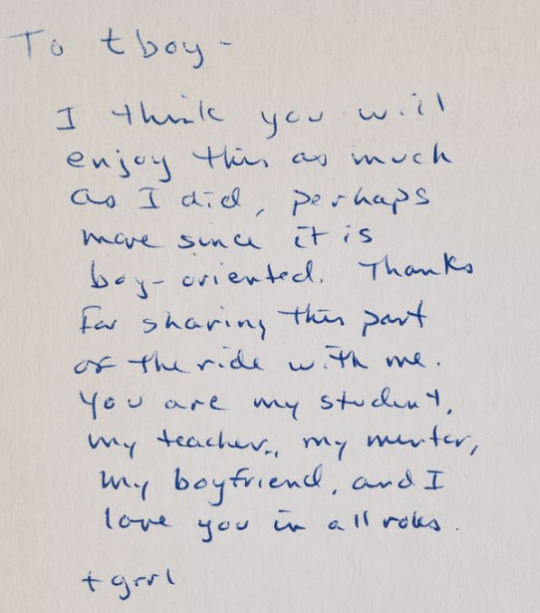 To tboy-
I think you will
enjoy this as much
as I did, perhaps
more since it is
boy-oriented. Thanks
for sharing this part
of the ride with me.
You are my student,
my teacher, my mentor,
my boyfriend, and I
love you in all roles.
tgrrl